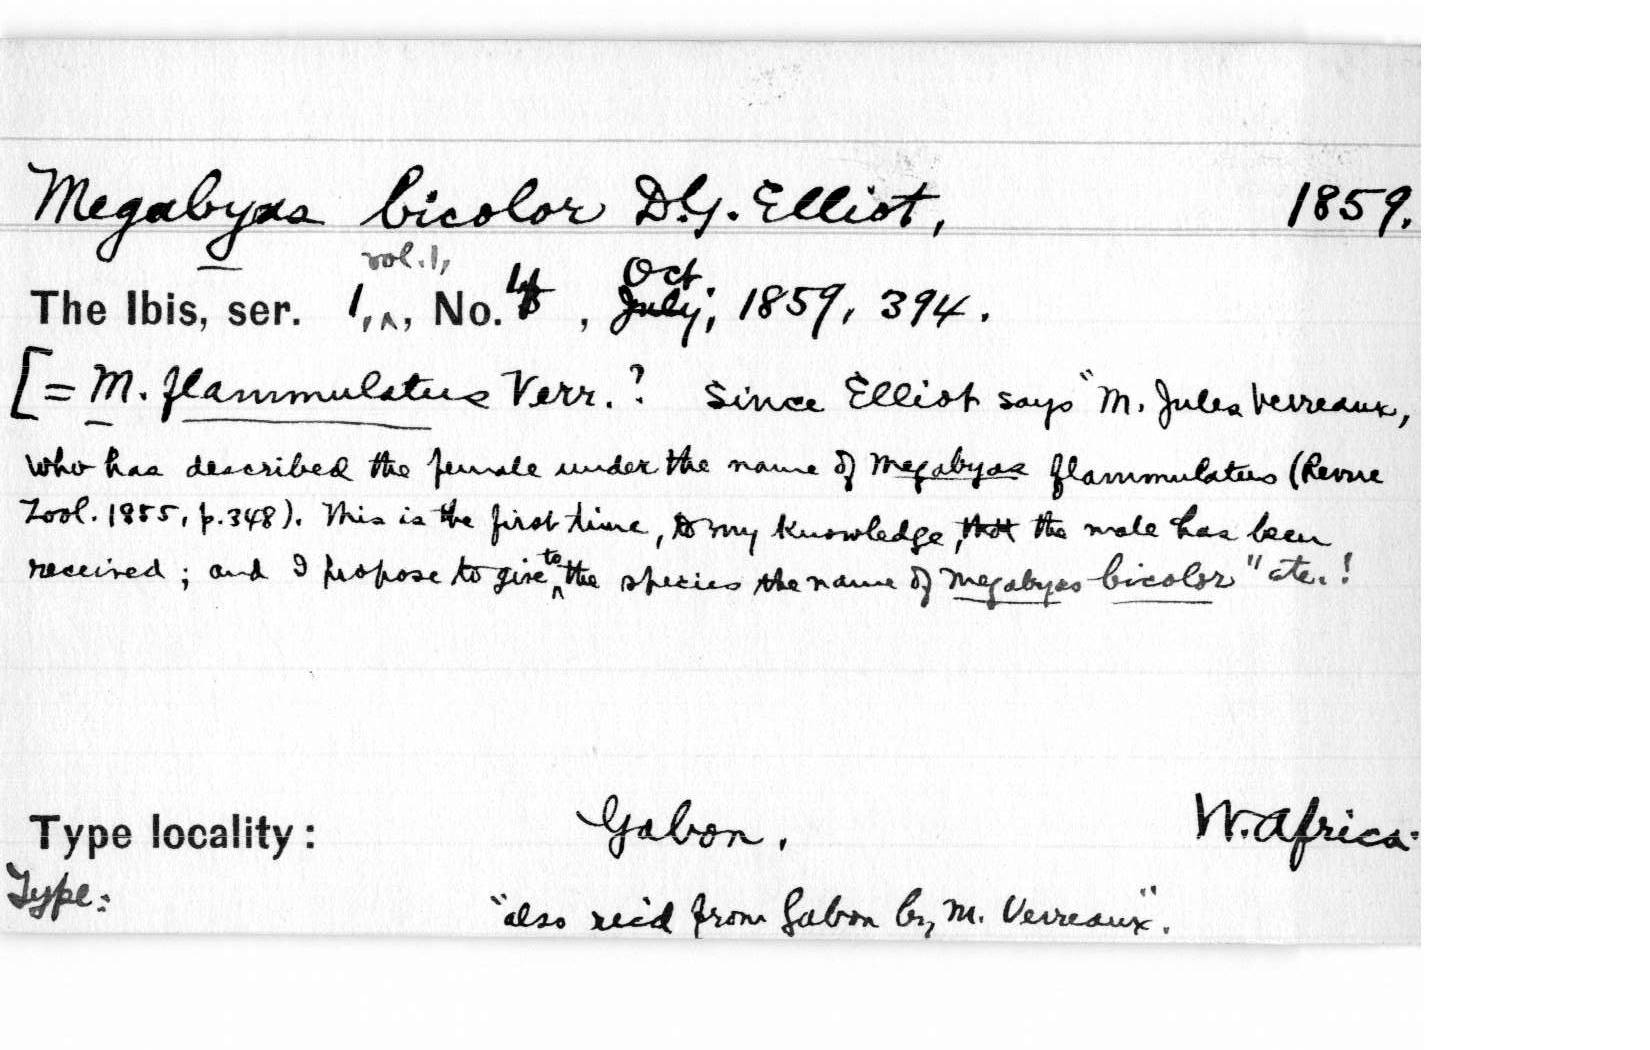 Megabyas bicolor D.G. Elliot, 1859.
vol. 1,
The Ibis, ser. 1, ^, No. 4, Oct. July, 1859, 394.
[= M. flammulatus Verr.? Since Elliot says "M. Jules Verreaux,
who has described the female under the name of Megabyas flammulatus (Revue
Zool. 1855, p. 348). This is the first time, to my knowledge, that the male has been
received; and I propose to give to the species the name of Megabyas bicolor" etc.!
Type locality: Gabon. W. Africa.
Type:
"also rec'd from Gabon by M. Verreaux".